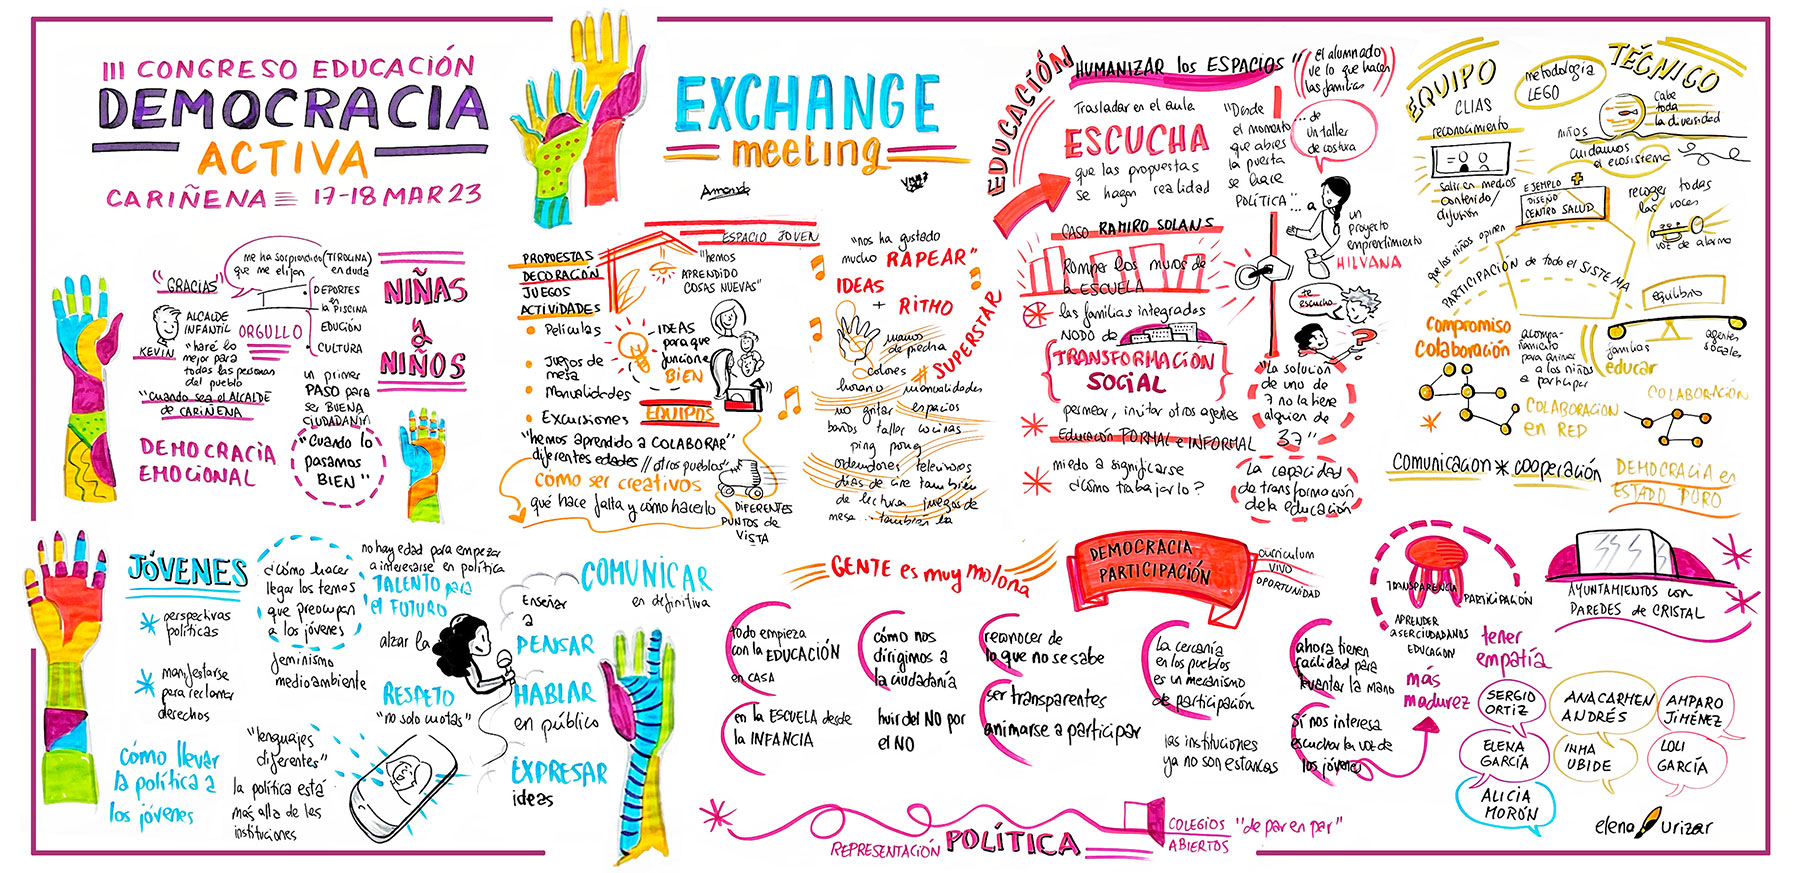 III CONGRESO EDUCACIÓN
DEMOCRACIA
ACTIVA
CARIÑENA 17-18 MAR 23
EXCHANGE
meeting
Amanda
me ha sorprendido (TIROLINA)
que me elijan en duda
"GRACIAS"
ALCALDE
INFANTIL
KEVIN
ORGULLO
DEPORTES
en
la PISCINA
EDUCIÓN
CULTURA
"haré lo
mejor para
todas las personas
del pueblo
"Cuando sea el ALCALDE
de CARIÑENA
un primer
PASO para
ser BUENA
CIUDADANIA
NIÑAS
y
NIÑOS
DEMOCRACIA
EMOCIONAL
"Cuando lo
pasamos
BIEN"
ESPACIO JOVEN
PROPUESTAS
DECORACIÓN
JUEGOS
ACTIVIDADES
Películas
Juegos de
mesa
Manualidades
Excursiones
"hemos
APRENDIDO
COSAS NUEVAS"
IDEAS
para que
funcione
BIEN
EQUIPOS
"hemos aprendido a COLABORAR"
diferentes edades // otros pueblos"
cómo ser creativos
qué hace falta y cómo hacerlo
DIFERENTES
PUNTOS de
VISTA
"nos ha gustado
mucho RAPEAR"
IDEAS
+ RITMO
# SUPERSTAR
manos
de piedra
colores
horario manualidades
no gritar espacios
baños taller cocinas
ping pong
ordenadores televisores
días de cine también
de lectura juegos de
mesa... también la
EDUCACIÓN
HUMANIZAR los ESPACIOS"
El alumnado
ve lo que hacen
las familias
Trasladar en el aula
ESCUCHA
que las propuestas
se hagan realidad
"Donde
el momento
que abres
la puerta
se hace
POLÍTICA
... de
un taller
de costura
... a
un
proyecto
emprendimiento
HILVANA
CASO RAMIRO SOLANS
Romper los muros de
la ESCUELA
las familias integradas
NODO de
TRANSFORMACIÓN
SOCIAL
te
escucho
permear, invitar otros agentes
Educación FORMAL e INFORMAL
miedo a significarse
¿cómo trabajarlo?
"La solución
de uno de
7 no la tiene
alguien de
37"
La capacidad
de transformación
de la educación
EQUIPO
TÉCNICO
CLIAS
metodología
LEGO
reconocimiento
Salir en medios
contenido/
difusión
Cabe
toda
la diversidad
niños
cuidamos
el ecosistema
EJEMPLO
DISEÑO
CENTRO SALUD
recoger todas
las voces
voz de alarma
que los niños opinen
PARTICIPACIÓN de todo el SISTEMA
equilibrio
Compromiso
colaboración
acompa-
ñamiento
para animar
a los niños
a participar
familias
educar
agentes
sociales
COLABORACIÓN
en RED
COLABORACIÓN
comunicación * cooperación
DEMOCRACIA en
ESTADO PURO
JÓVENES
perspectivas
políticas
manifestarse
para reclamar
derechos
cómo llevar
la política a
los jóvenes
¿Cómo hacer
llegar los temas
que preocupan
a los jóvenes
feminismo
medioambiente
"lenguajes
diferentes"
la política está
más alla de las
instituciones
no hay edad para empezar
a interesarse en política
TALENTO para
el FUTURO
alzar la
RESPETO
"no solo cuotas"
COMUNICAR
en definitiva
Enseñar
a
PENSAR
HABLAR
en público
EXPRESAR
ideas
GENTE es muy molona
DEMOCRACIA
PARTICIPACIÓN
curriculum
VIVO
OPORTUNIDAD
todo empieza
con la EDUCACIÓN
en CASA
en la ESCUELA desde
la INFANCIA
cómo nos
dirigimos a
la ciudadanía
huir del NO por
el NO
reconocer de
lo que no se sabe
ser transparentes
animarse a participar
la cercanía
en los pueblos
es un mecanismo
de participación
las instituciones
ya no son estancas
ahora tienen
facilidad para
levantar la mano
Si nos interesa
escuchar la voz de
los jóvenes
TRANSPARENCIA
PARTICIPACIÓN
APRENDER
A SER CIUDADANOS
EDUCACIÓN
más
madurez
tener
empatía
AYUNTAMIENTOS con
PAREDES de CRISTAL
SERGIO
ORTIZ
ANACARMEN
ANDRÉS
AMPARO
JIMÉNEZ
ELENA
GARCÍA
INMA
UBIDE
LOLI
GARCÍA
ALICIA
MORÓN
REPRESENTACIÓN POLÍTICA
COLEGIOS "de par en par"
ABIERTOS
elena urizar